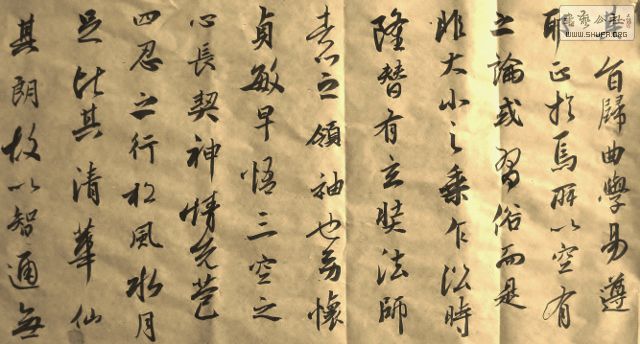 旨歸曲學易遵
耶正於焉所以空有
之論或習俗而是
非大小之乘乍沿時
隆替有玄奘法師
者之領袖也幼懷
貞敏早悟三空之
心長契神情先苞
四忍之行松風水月
足比其清華仙
其朗故以智通無
WWW.SHUFA.ORG